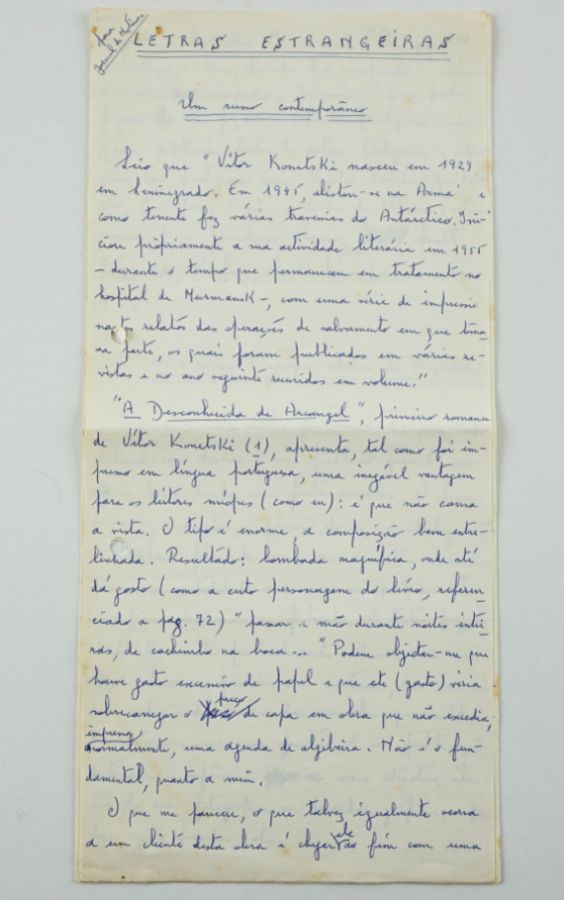 para
LETRAS ESTRANGEIRAS
Um russo contemporâneo
Leio que "Vítor Konetski nasceu em 1929
em Leninegrado. Em 1945, alistou-se na Armada e
como tenente fez várias travessias do Antárctico. Ini-
ciou pròpriamente a sua actividade literária em 1955
– durante o tempo que permaneceu em tratamento no
hospital de Murmansk –, com uma série de impressio
nantes relatos das operações de salvamento em que toma
va parte, os quais foram publicados em várias re-
vistas e no ano seguinte reunidos em volume."
"A Desconhecida de Arcangel", primeiro romance
de Vítor Konetski (1), apresenta, tal como foi im-
presso em língua portuguesa, uma inegável vantagem
para os leitores míopes (como eu): é que não cansa
a vista. O tipo é enorme, a composição bem entre-
linhada. Resultado: lombada magnífica, onde até
dá gosto (como a certo personagem do livro, referen-
ciado a pag. 72) "passar a mão durante noites intei
ras, de cachimbo na boca..." Podem objectar-me que
houve gasto excessivo de papel e que ele (gasto) viria
sobrecarregar o preço de capa em obra que não excedia,
impressa normalmente, uma agenda de algibeira. Não é o fun-
damental, quanto a mim.
O que me pareceu, o que talvez igualmente ocorra
a um cliente desta obra é chegar ele ao fim com uma